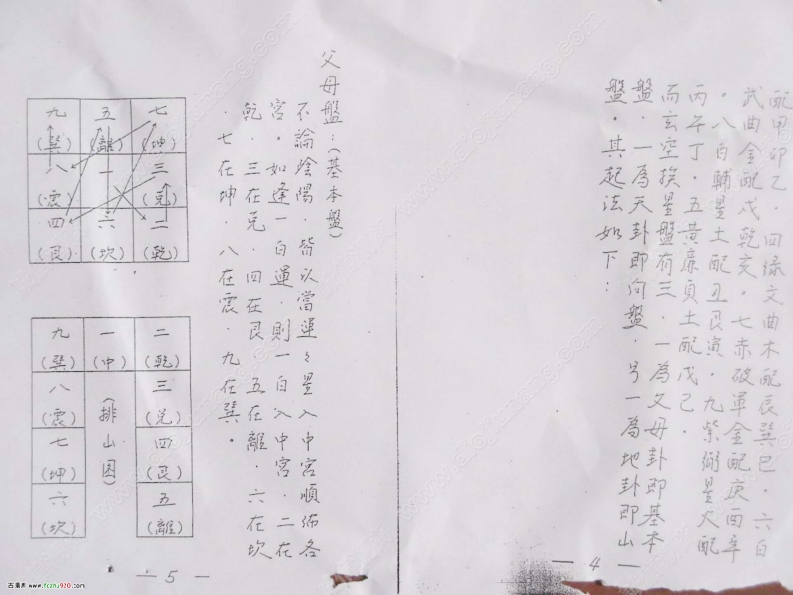 配甲卯乙．四綠文曲木配辰巽巳．六白
武曲金配戌乾亥．七赤破軍金配庚酉辛
．八白輔星土配丑艮寅．九紫弼星火配
丙午丁．五黃廉貞土配戊己．
而玄空挨星盤有三．一為父母卦即基本
盤．一為天卦即向盤．另一為地卦即山
盤．其起法如下：
— 4 —
父母盤：(基本盤)
不論陰陽．皆以當運々星入中宮順佈各
宮．如逢一白運．則一白入中宮．二在
乾．三在兌．四在艮 五在離．六在坎
．七在坤．八在震．九在巽．
九 五 七
(巽) (離) (坤)
八 一 三
(震) (兌)
四 六 二
(艮) (坎) (乾)
九 一 二
(巽) (中) (乾)
八 三
(震) (兌)
七 四
(坤) (艮)
六 五
(坎) (離)
(排山図)
— 5 —
www.fczhj920.com